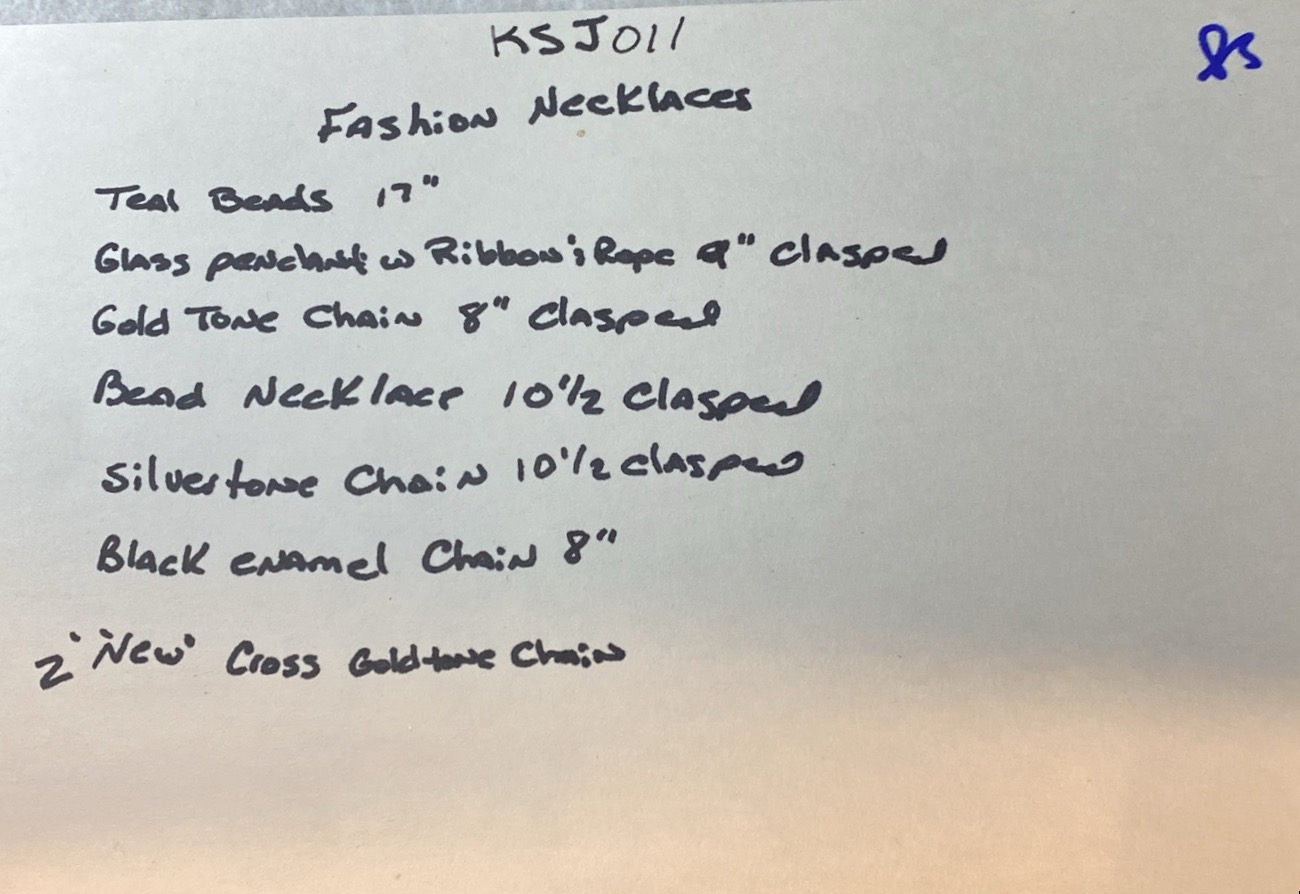 KSJ011
85
Fashion Necklaces
Teal Beads 17"
Glass pendant w Ribbon & Rope 9" Clasped
Gold Tone Chain 8" Clasped
Bead Necklace 10 1/2 Clasped
Silvertone Chain 10 1/2 clasped
Black enamel Chain 8"
2 "New" Cross Goldtone Chain